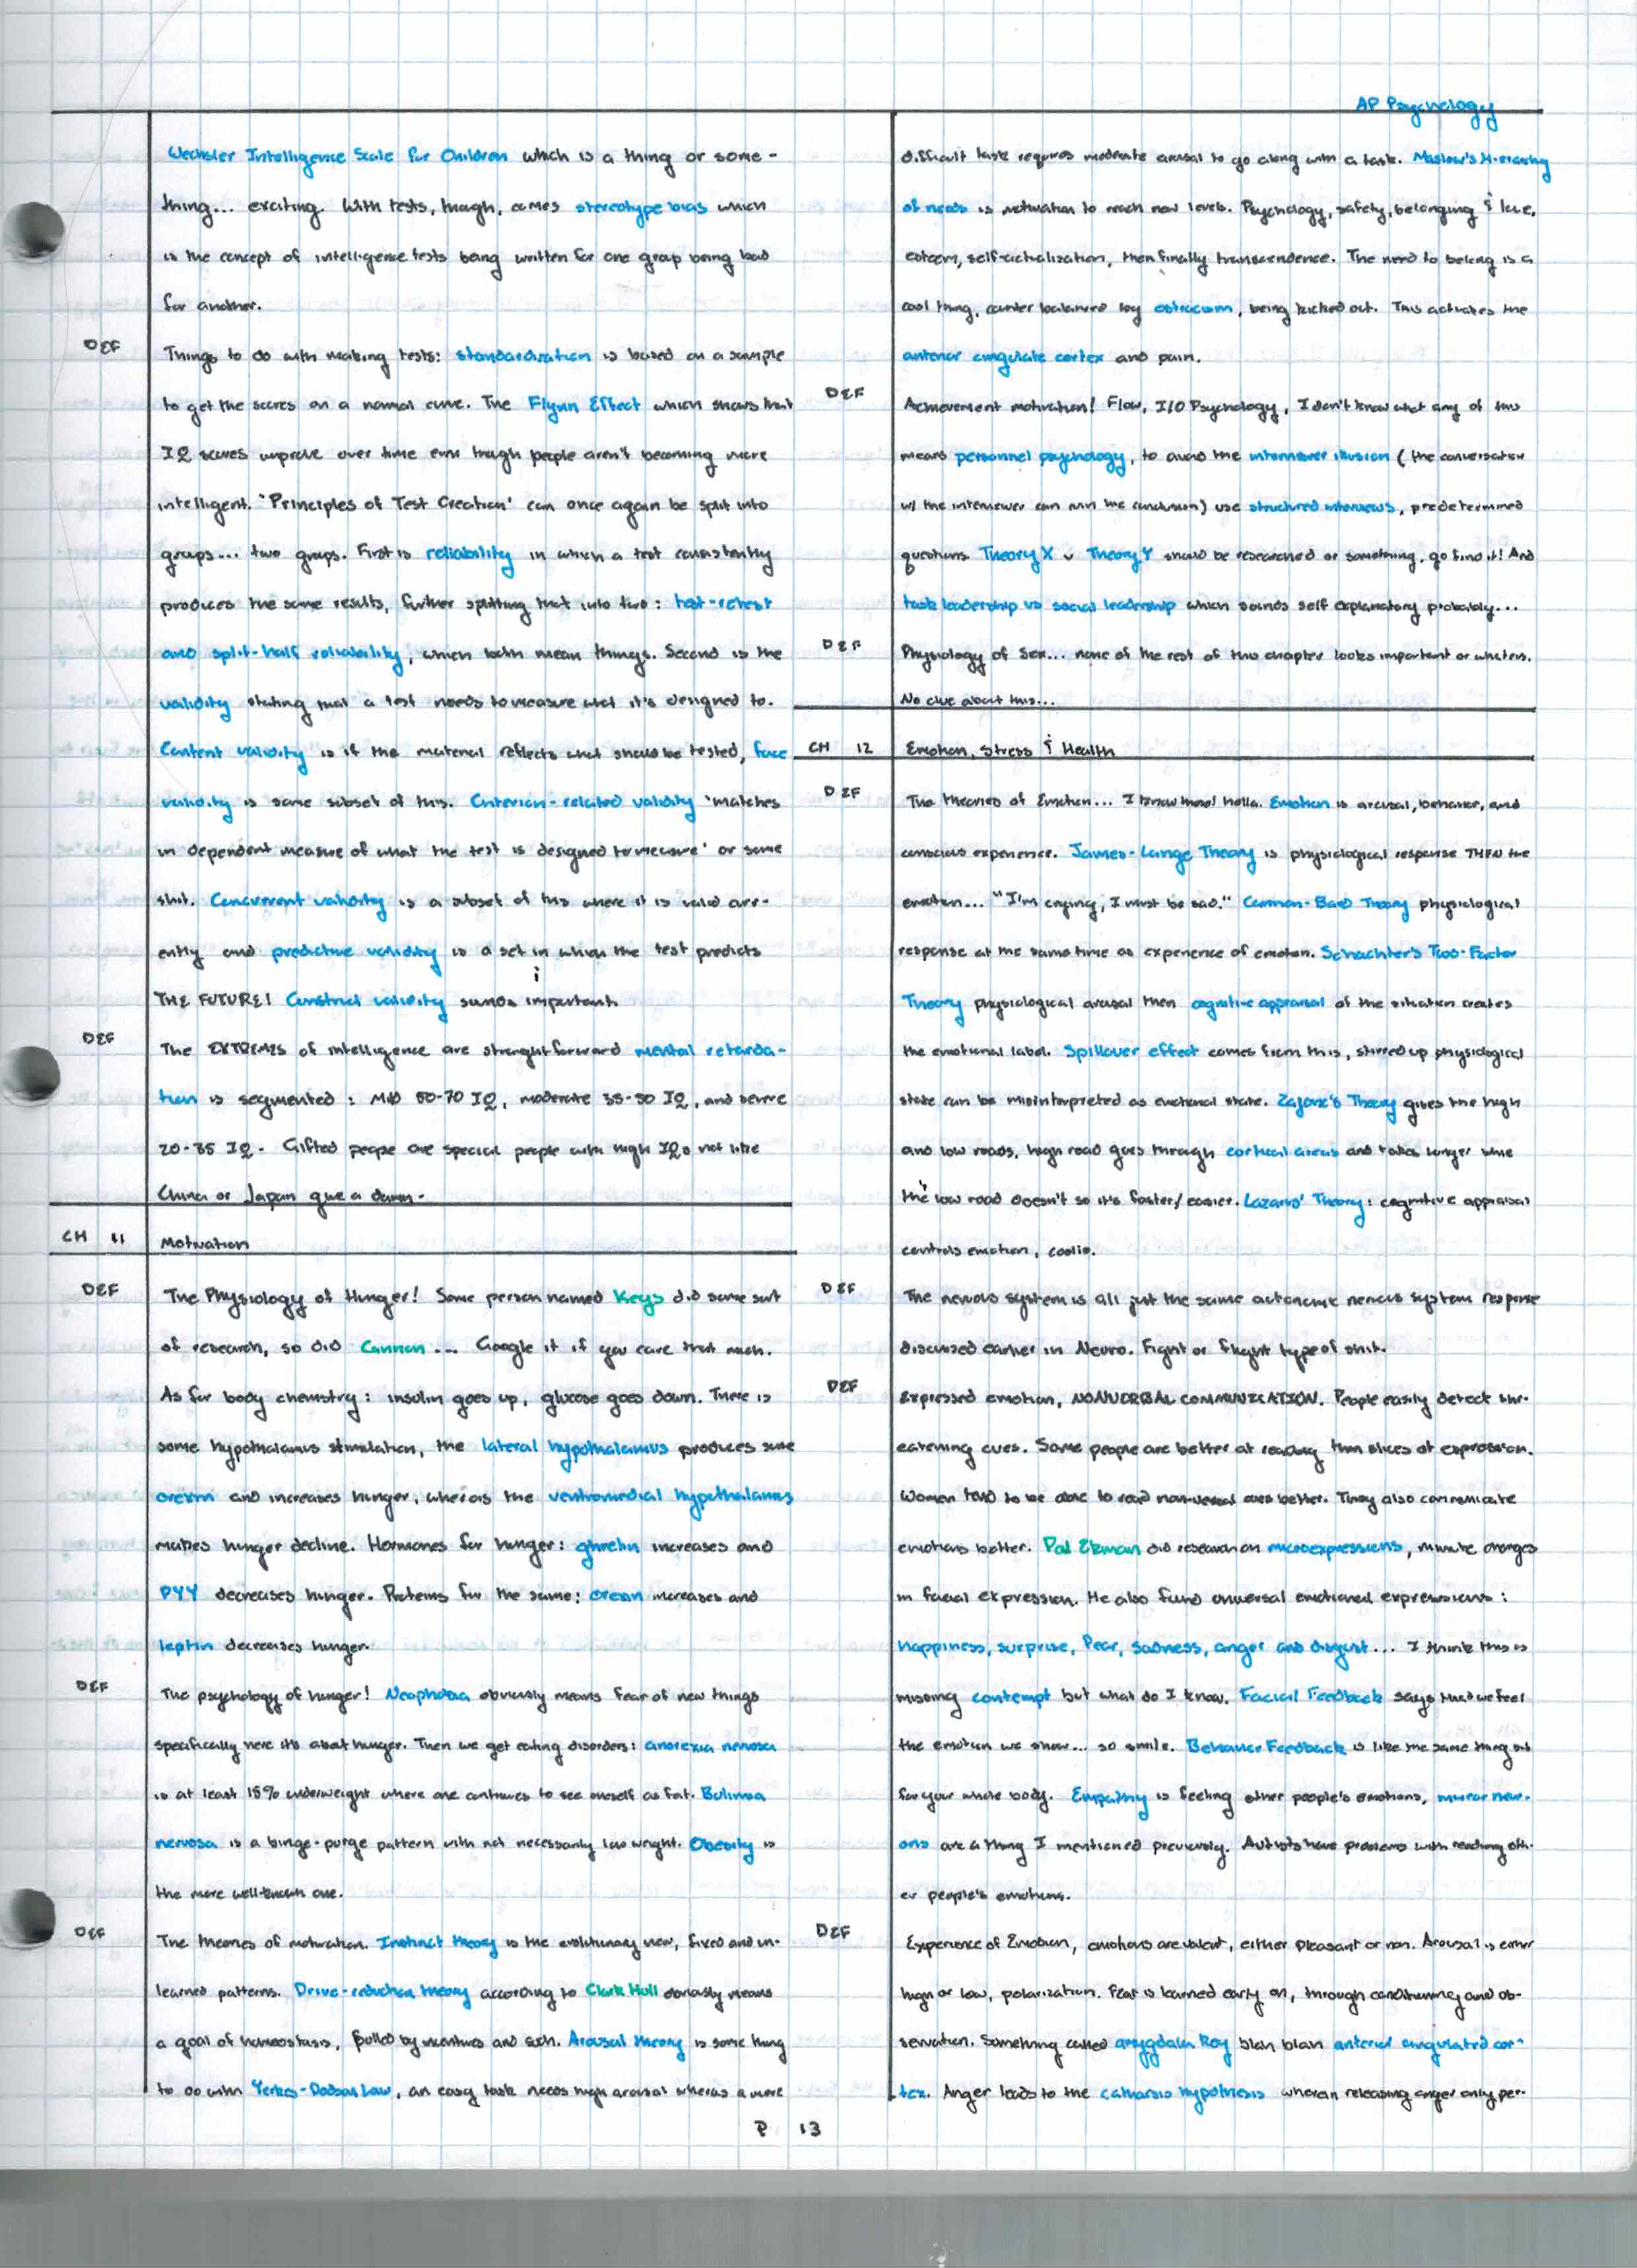 AP Psychology
Wechsler Intelligence Scale for Children which is a thing or some-
thing... exciting. With tests, though, comes stereotype bias which
is the concept of intelligence tests being written for one group being bad
for another.
DEF
Things to do with making tests: standardization is based on a sample
to get the scores on a normal curve. The Flynn Effect which shows that
IQ scores improve over time even though people aren't becoming more
intelligent. 'Principles of Test Creation' can once again be split into
groups... two groups. First is reliability in which a test consistently
produces the same results, further splitting that into two: test-retest
and split-half reliability, which both mean things. Second is the
validity stating that a test needs to measure what it's designed to.
Content validity is if the material reflects what should be tested, face
validity is some subset of this. Criterion-related validity 'matches
in dependent measure of what the test is designed to measure' or some
shit. Concurrent validity is a subset of this where it is valid curr-
ently and predictive validity is a set in which the test predicts
THE FUTURE! Construct validity sounds important.
DEF
The EXTREMES of intelligence are straightforward mental retarda-
tion is segmented: Mild 50-70 IQ, moderate 35-50 IQ, and severe
20-35 IQ. Gifted people are special people with high IQs not like
China or Japan give a damn.
CH 11 Motivation
DEF
The Physiology of Hunger! Some person named Keys did some sort
of research, so did Cannon... Google it if you care that much.
As for body chemistry: insulin goes up, glucose goes down. There is
some hypothalamus stimulation, the lateral hypothalamus produces some
orexin and increases hunger, whereas the ventromedial hypothalamus
makes hunger decline. Hormones for hunger: ghrelin increases and
PYY decreases hunger. Proteins for the same: orexin increases and
leptin decreases hunger.
DEF
The psychology of hunger! Neophobia obviously means fear of new things
specifically here it's about hunger. Then we get eating disorders: anorexia nervosa
is at least 15% underweight where one continues to see oneself as fat. Bulimia
nervosa is a binge-purge pattern with not necessarily low weight. Obesity is
the more well-known one.
DEF
The theories of motivation. Instinct theory is the evolutionary view, fixed and un-
learned patterns. Drive-reduction theory according to Clark Hull obviously means
a goal of homeostasis, pulled by incentives and such. Arousal theory is some thing
to do with Yerkes-Dodson Law, an easy task needs high arousal whereas a more
difficult task requires moderate arousal to go along with a task. Maslow's Hierarchy
of needs is motivation to reach new levels. Psychology, safety, belonging & love,
esteem, self-actualization, then finally transcendence. The need to belong is a
cool thing, counter balanced by ostracism, being kicked out. This activates the
anterior cingulate cortex and pain.
DEF
Achievement motivation! Flow, I/O Psychology, I don't know what any of this
means personnel psychology, to avoid the interviewer illusion (the conversation
w/ the interviewer can ruin the conclusion) use structured interviews, predetermined
questions. Theory X v Theory Y should be researched or something, go find it! And
task leadership vs social leadership which sounds self explanatory probably...
DEF
Physiology of Sex... none of the rest of this chapter looks important or whatevs.
No clue about this...
CH 12 Emotion, Stress & Health
DEF
The theories of Emotion... I know those! Holla. Emotion is arousal, behavior, and
conscious experience. James-Lange Theory is physiological response THEN the
emotion... "I'm crying, I must be sad." Cannon-Bard Theory physiological
response at the same time as experience of emotion. Schachter's Two-Factor
Theory physiological arousal then cognitive appraisal of the situation creates
the emotional label. Spillover effect comes from this, stirred up physiological
state can be misinterpreted as emotional state. Zajonc's Theory gives the high
and low roads, high road goes through cortical areas and takes longer while
the low road doesn't so it's faster/easier. Lazarus' Theory: cognitive appraisal
controls emotion, coolio.
DEF
The nervous system is all just the same autonomic nervous system response
discussed earlier in Neuro. Fight or flight type of shit.
DEF
Expressed emotion, NONVERBAL COMMUNICATION. People easily detect thr-
eatening cues. Some people are better at reading thin slices of expression.
Women tend to be able to read nonverbal cues better. They also communicate
emotions better. Pal Ekman did research on microexpressions, minute changes
in facial expression. He also found universal emotional expressions:
happiness, surprise, fear, sadness, anger and disgust... I think this is
missing contempt but what do I know. Facial Feedback says that we feel
the emotion we show... so smile. Behavior Feedback is like the same thing but
for your whole body. Empathy is feeling other people's emotions, mirror neur-
ons are a thing I mentioned previously. Autists have problems with reading oth-
er people's emotions.
DEF
Experience of Emotion, emotions are valent, either pleasant or non. Arousal is either
high or low, polarization. Fear is learned early on, through conditioning and ob-
servation. Something called amygdala Roy blah blah anterior cingulated cor-
tex. Anger leads to the catharsis hypothesis wherein releasing anger only per-
P 13